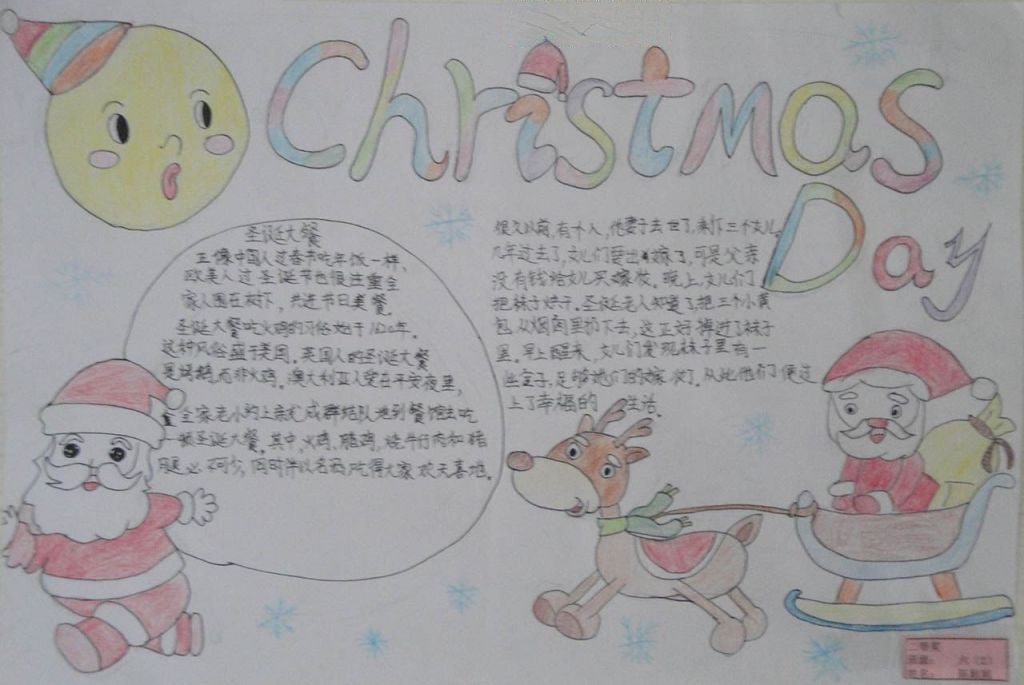 Christmas
Day
圣诞大餐
正像中国人过春节吃年饭一样,
欧美人过圣诞节也很注重全
家人围在树下,共进节日美餐.
圣诞大餐吃火鸡的习俗始于1620年.
这种风俗盛于美国.英国人的圣诞大餐
是烤鹅,而非火鸡.澳大利亚人爱在平安夜里,
全家老小约上亲友成群结队地到餐馆去吃
一顿圣诞大餐,其中,火鸡,腊鸡,烧牛仔肉和猪
腿必不可少,同时伴以名酒,吃得大家欢天喜地.
很久以前,有个人,他妻子去世了,剩下三个女儿.
几年过去了,女儿们要出嫁了,可是父亲
没有钱给女儿买嫁妆.晚上,女儿们
把袜子烘干.圣诞老人知道了,把三个小黄
包从烟囱里扔下去,这正好掉进了袜子
里.早上醒来,女儿们发现袜子里有一
些金子,足够她们的嫁妆了.从此他们便过
上了幸福的生活.
二等奖
班级: 六(2)
姓名: